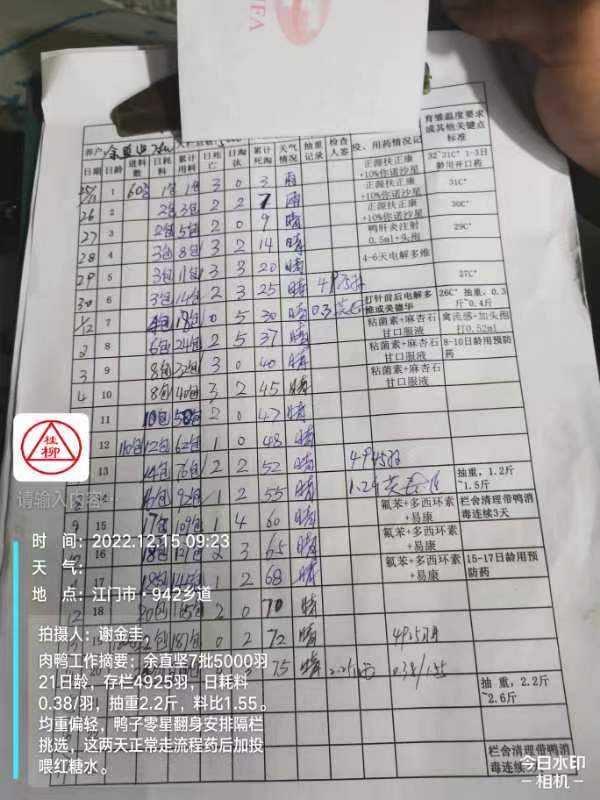 养户 余直坚
日期 日龄 进料数 日耗料 累计用料 日死亡 日淘汰 累计死淘 天气情况 抽重记录 检查人签 疫、用药情况记 育雏温度要求或其他关键点标准
1 60包 1包 1包 3 0 3 雨 正源扶正康+10%你诺沙星 32~31C° 1-3日龄用开口药
26 2 2包 3包 2 2 7 雨 正源扶正康+10%你诺沙星 31C°
27 3 2包 5包 2 0 9 晴 正源扶正康+10%你诺沙星 30C°
28 4 3包 8包 3 2 14 晴 鸭肝炎注射0.5ml+头孢 29C°
29 5 3包 11包 3 3 20 晴 4-6天电解多维
30 6 3包 14包 2 3 25 晴 4975羽 27C°
1/12 7 4包 18包 0 5 30 晴 0.3 打针前后电解多维或美德华 26C° 抽重，0.3斤~0.4斤
2 8 6包 24包 2 5 37 晴 粘菌素+麻杏石甘口服液 禽流感+加头孢打0.52ml
3 9 8包 32包 3 0 40 晴 粘菌素+麻杏石甘口服液 8-10日龄用预防药
4 10 8包 40包 3 2 45 晴 粘菌素+麻杏石甘口服液
11 10包 50包 2 0 47 晴
12 12包 62包 1 0 48 晴
13 14包 76包 2 2 52 晴 4945羽
14 92包 1 2 55 晴 1.2斤 抽重，1.2斤~1.5斤
15 17包 109包 1 4 60 晴 氟苯+多西环素+易康 栏舍清理带鸭消毒连续3天
16 18包 2 3 65 晴 氟苯+多西环素+易康
17 1 2 68 晴 氟苯+多西环素+易康 15-17日龄用预防药
18 20包 2 0 70 晴
0 2 72 晴 4925羽
20 75 晴 0.38/1.55 抽重，2.2斤~2.6斤
栏舍清理带鸭消毒连续
桂柳
请输入内容…
时 间：2022.12.15 09:23
天 气：
地 点：江门市·942乡道
拍摄人：谢金圭
肉鸭工作摘要：余直坚7批5000羽
21日龄，存栏4925羽，日耗料
0.38/羽，抽重2.2斤，料比1.55。
均重偏轻，鸭子零星翻身安排隔栏
挑选，这两天正常走流程药后加投
喂红糖水。
今日水印
－相机－